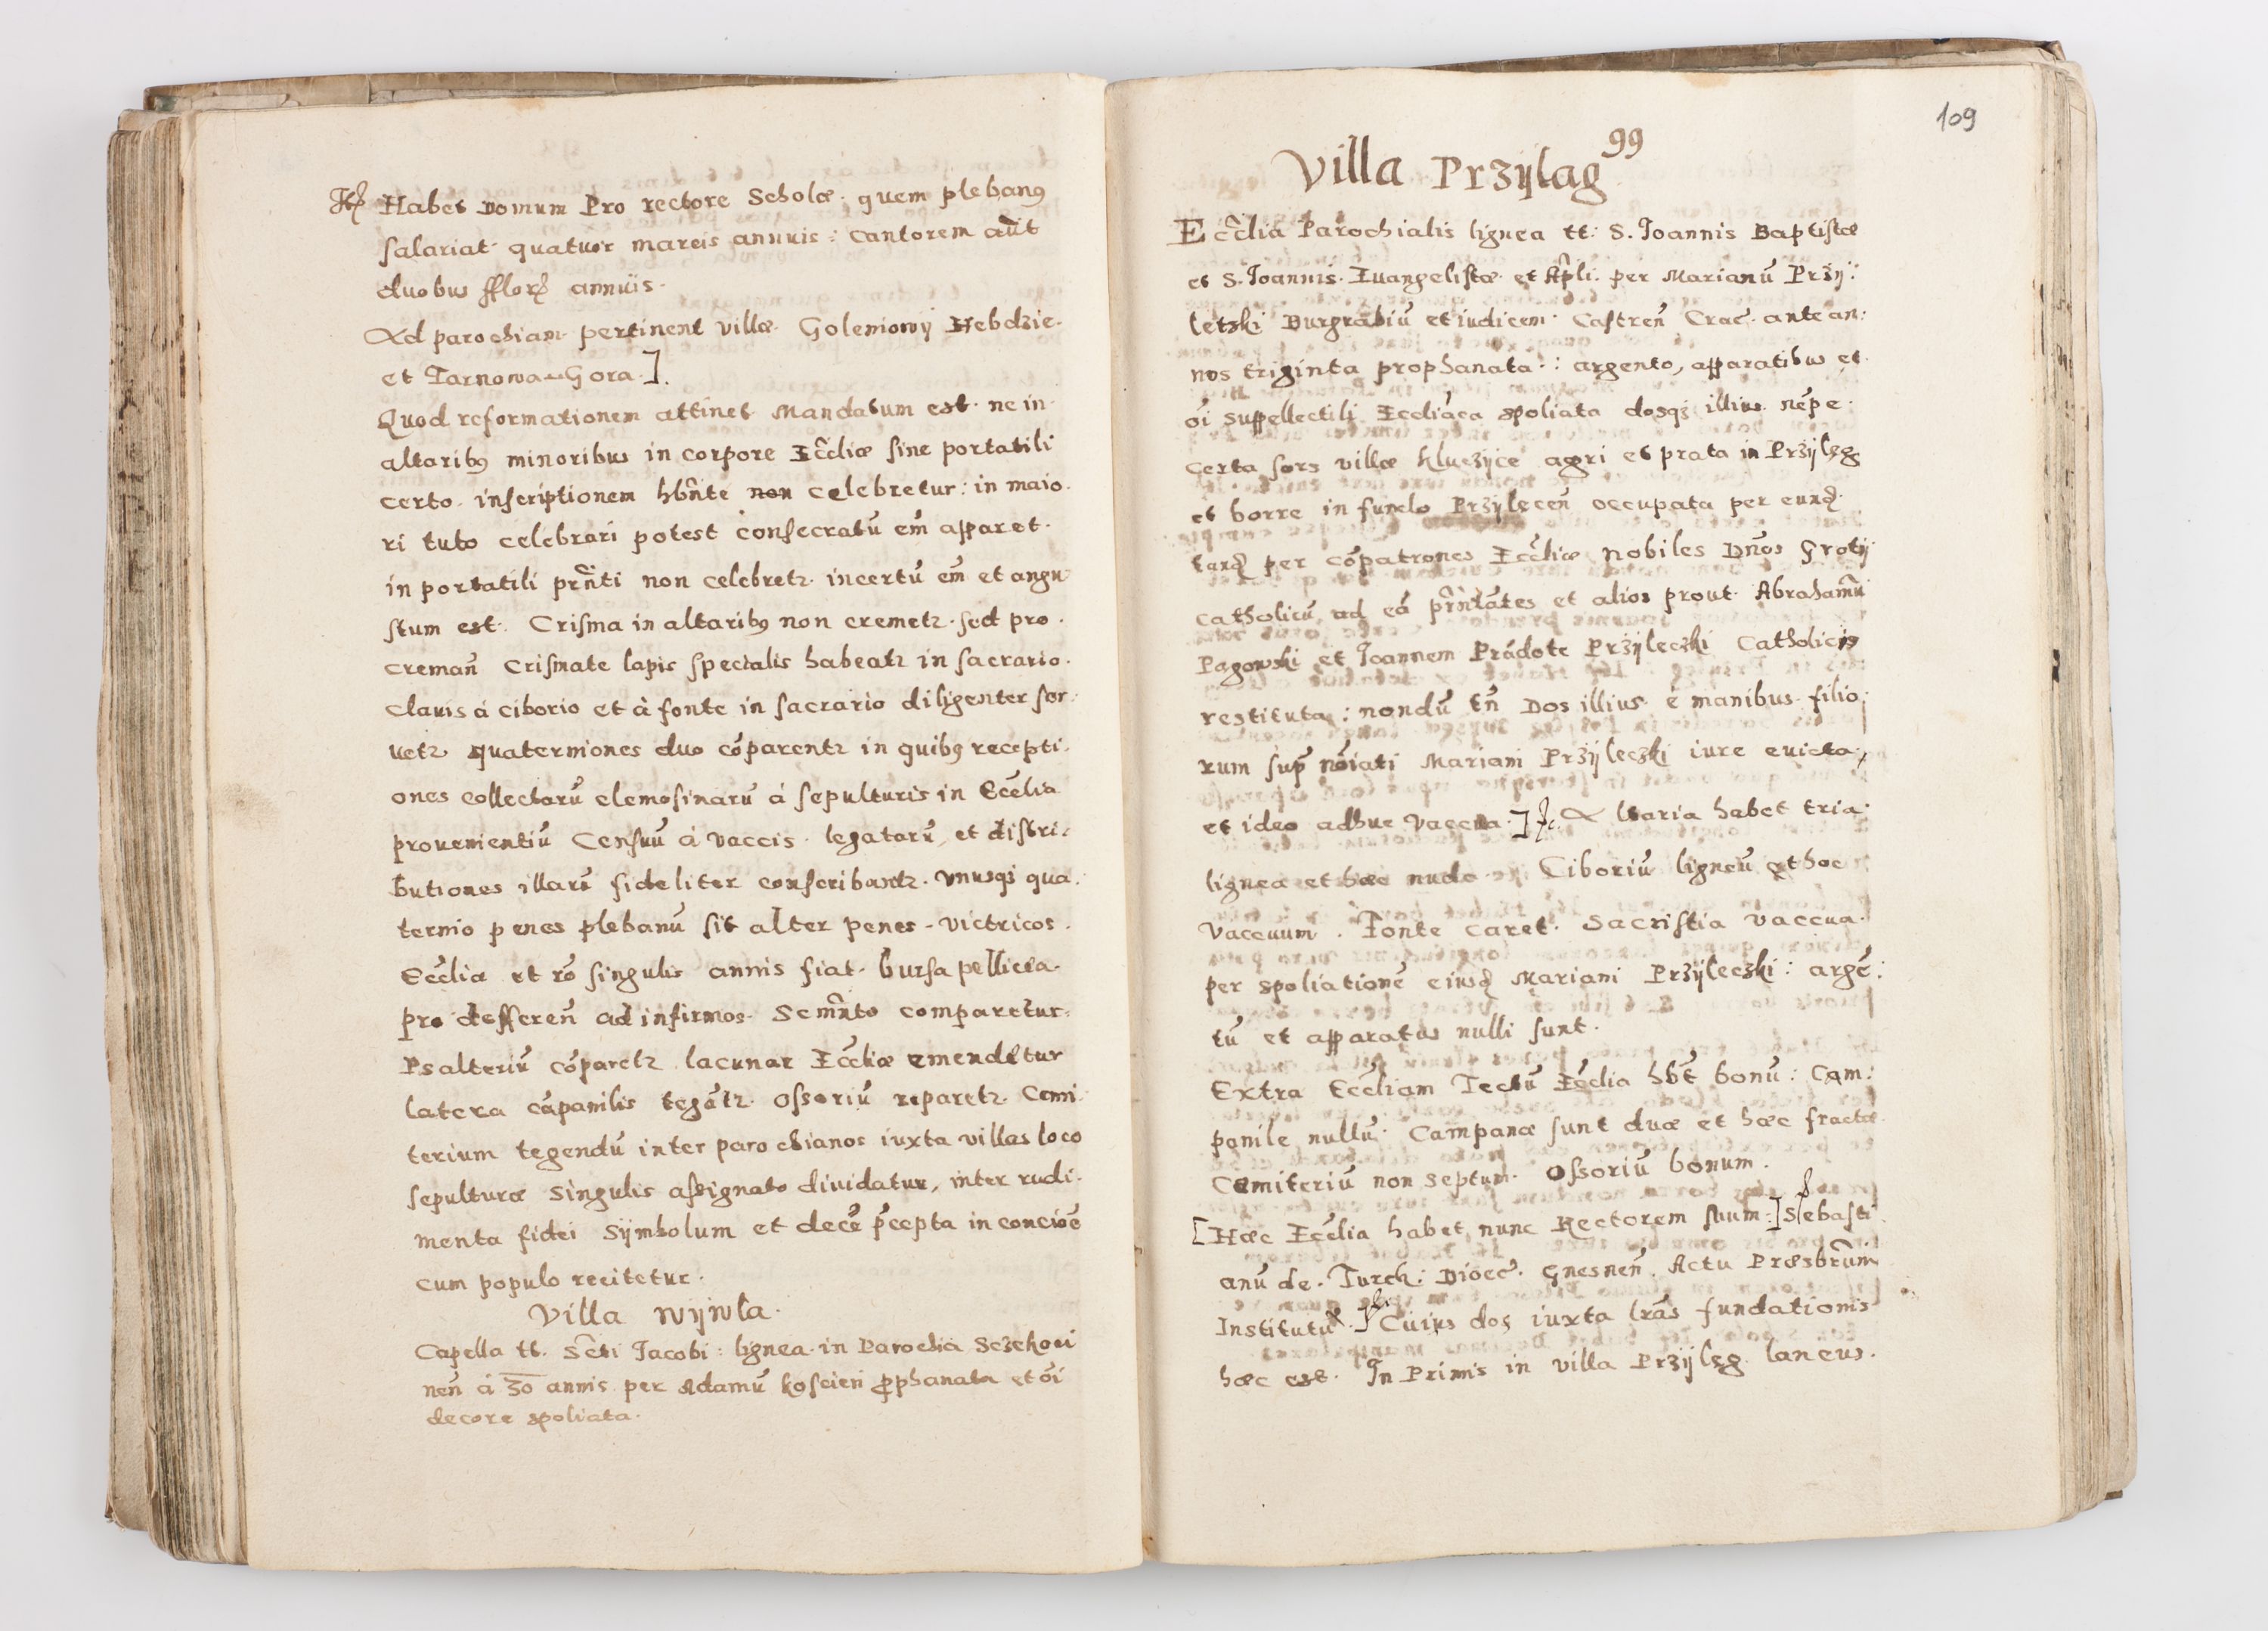 Itē Habet Domum Pro rectore Scholæ. quem plebang
salariat quatuor marcis annuis: Cantorem aūt
duobus fflorē annuis.
Ad parochiam pertinent villæ. Goleniowÿ Hebdzie.
et Tarnowa-Gora.].
Quod reformationem attinet Mandatum est. ne in
altaribg minoribus in corpore Ecc̃liæ sine portatili
certo. inscriptionem hbñte non celebretur: in maio.
ri tuto celebrari potest consecratū em̄ apparet.
in portatili prñti non celebretz. incertū em̄ et angu
stum est. Crisma in altaribg non cremetz. sed pro.
creman̄ Crismate lapis specialis habeatz in sacrario.
Clauis á ciborio et à fonte in sacrario diligenter ser.
uetz. quaterniones duo cōparentz in quibg recepti.
ones collectarū elemosinarū á sepulturis in Ecc̄lia
prouenientiū Censuū á vaccis. legatarū, et distri.
butiones illarū fideliter conscribantz. vnusqz qua.
ternio penes plebanū sit alter penes - victricos.
Ecc̄liæ et rō singulis annis fiat. bursa pellicea.
pro defferen̄ ad infirmos. Scm̃nto comparetur.
Psalteriū cōparetz lacunar Ecc̄liæ emendetur
latera cāpanilis tegātz. Ossoriū reparetz. Cemi.
terium tegendū inter parochianos iuxta villas loco
sepulturæ singulis assignato diuidatur, inter rudi.
menta fidei Sÿmbolum et decē p̄cepta in concioē
cum populo recitetur.
Villa wÿwla.
Capella tt. Sc̃ti Jacobi: lignea. in Parochia Sczekoci
nen̄ á 30 annis per Adamū koscien prphanata et ōi
decore spoliata.
109
99
Villa Przÿlag
Ecc̃lia Parochialis lignea tt: S. Joannis Baptistæ
et S. Joannis. Euangelistæ et Apl̃i. per Marianū Przÿ:
letzki Burgrabiū et iudicem Castren̄ Crac. ante an:
nos triginta prophanata: argento, apparatibus et
ōi suppellectili Ecc̄liāca spoliata dosqz illius nēpe.
Certa sors villæ kluczÿce agri et prata in Przÿlęg
et borre in fundo Przÿlęcen̄ occupata per eundē
tandē per cōpatrones Ecc̄liæ nobiles Dn̄os Grotÿ
catholicū ad eā pr̃ntātes et alios prout Abrahamū
Pagowski et Joannem Prádote Przÿleczki Catholicis
restituta: nondū tn̄ Dos illius é manibus filio:
rum sup̄ nōiati Mariani Przÿleczki iure euicta,
et ideo adhuc vaccua.] Altaria habet tria
lignea et hæc nuda. Ciboriū ligneū et hoc
Vaccuum. Fonte caret. Sacristia vaccua.
per spoliationē eiusdē Mariani Przÿleczki: argē:
tū et apparatus nulli sunt.
Extra Ecc̄liam Tectū Ecc̄lia hbt̄ bonū: Cam:
panile nullū. Campanæ sunt duæ et hæc fractæ
Cemiteriū non septum. Ossoriū bonum.
[Hæc Ecc̄lia habet nunc Rectorem suum:] Sebasti
anū de. Turek: Dioec̄. Gnesnen̄. Actu Præsbr̃um
Institutū.] Cuius dos iuxta lrās fundationis
hæc est. In Primis in villa Przÿlęg laneus.